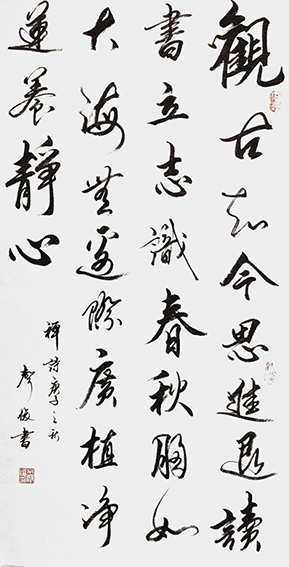 觀古知今思進退讀
書立志識春秋胸如
大海無邊際廣植净
蓮養靜心
禪詩庚子之秋
書